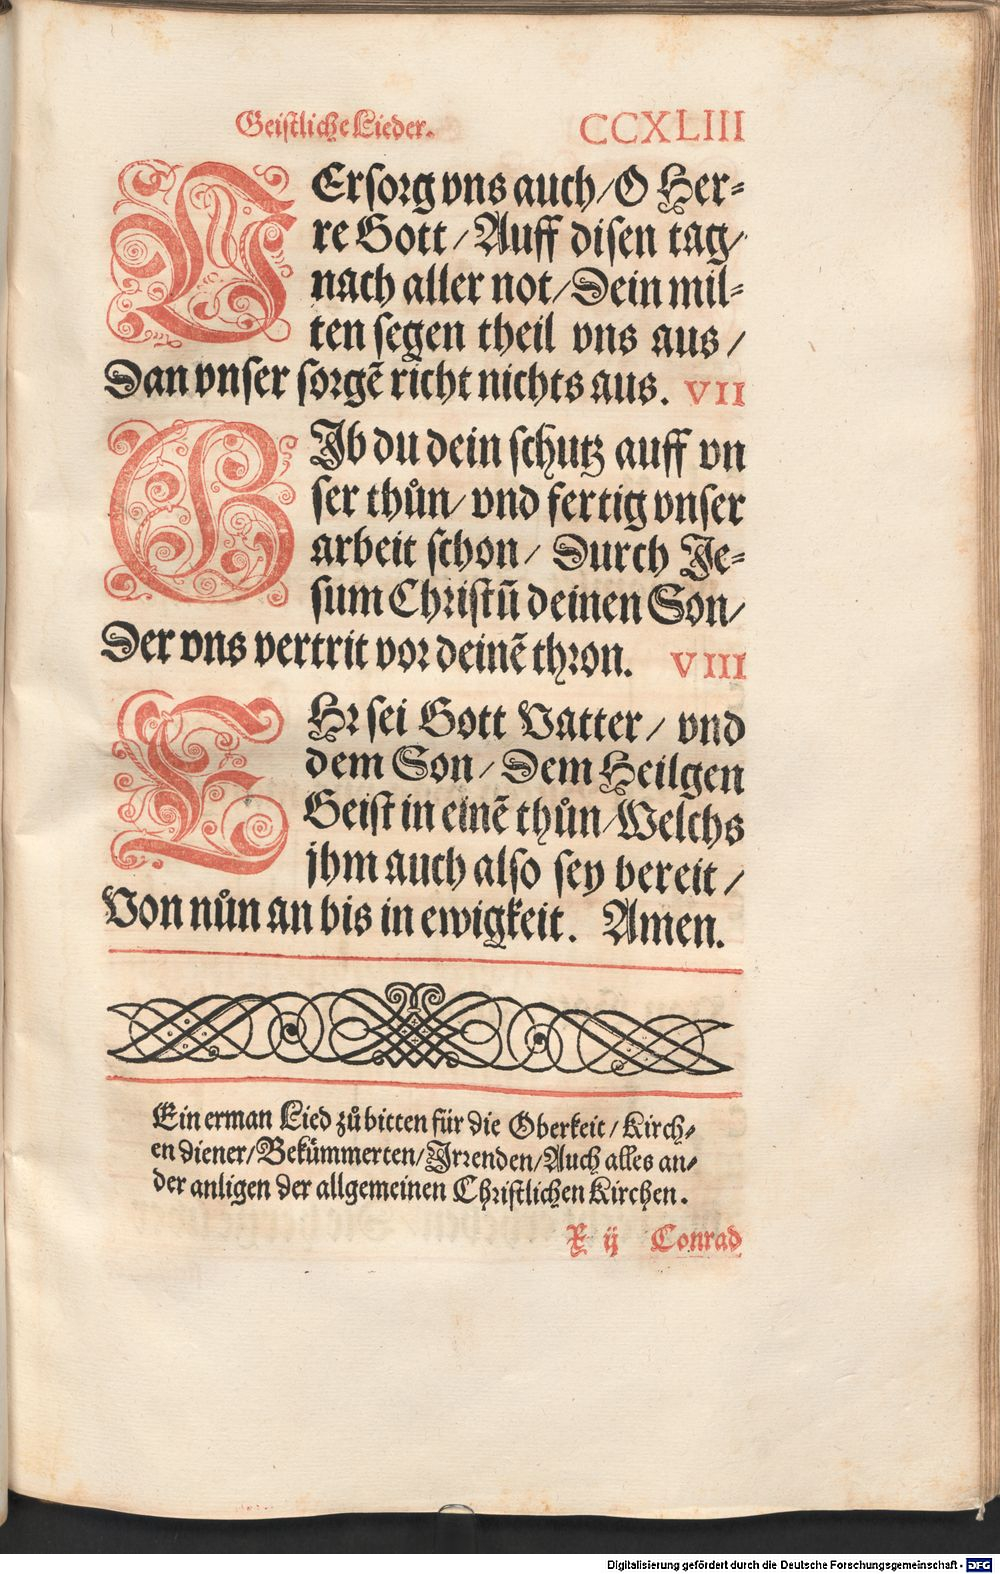 Geistliche Lieder. CCXLIII
VErsorg vns auch/O Her⸗
re Gott/Auff disen tag/
nach aller not/Dein mil⸗
ten segen theil vns aus/
Dan vnser sorgẽ richt nichts aus. VII
GIb du dein schutz auff vn
ser thůn/vnd fertig vnser
arbeit schon/Durch Je⸗
sum Christũ deinen Son/
Der vns vertrit vor deinẽ thron. VIII
EHr sei Gott Vatter/vnd
dem Son/Dem Heilgen
Geist in einẽ thůn/Welchs
jhm auch also sey bereit/
Von nůn an bis in ewigkeit. Amen.
Ein erman Lied zů bitten für die Oberkeit/Kirch⸗
en diener/Bekümmerten/Irrenden/Auch alles an⸗
der anligen der allgemeinen Christlichen Kirchen.
X ij Conrad
Digitalisierung gefördert durch die Deutsche Forschungsgemeinschaft - DFG